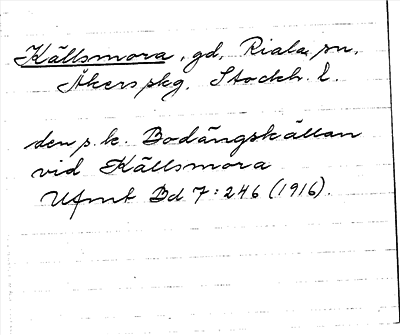 Källsmora, gd, Riala sn,
Åkers skg, Stockh. l.
den s.k. Bodängskällan
vid Källsmora
Ufmt Bd 7:246 (1916).